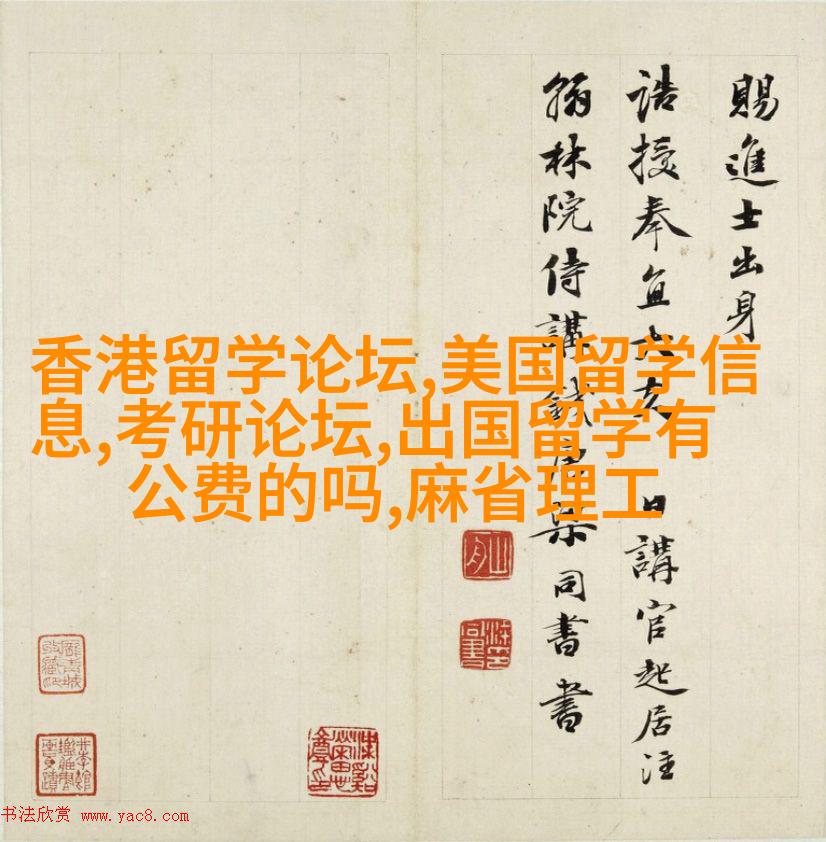 賜進士出身
誥授奉直大夫 日講官起居注
翰林院侍講錢唐梁同書書
香港留学论坛,美国留学信
息,考研论坛,出国留学有
公费的吗,麻省理工
书法欣赏 www.yac8.com